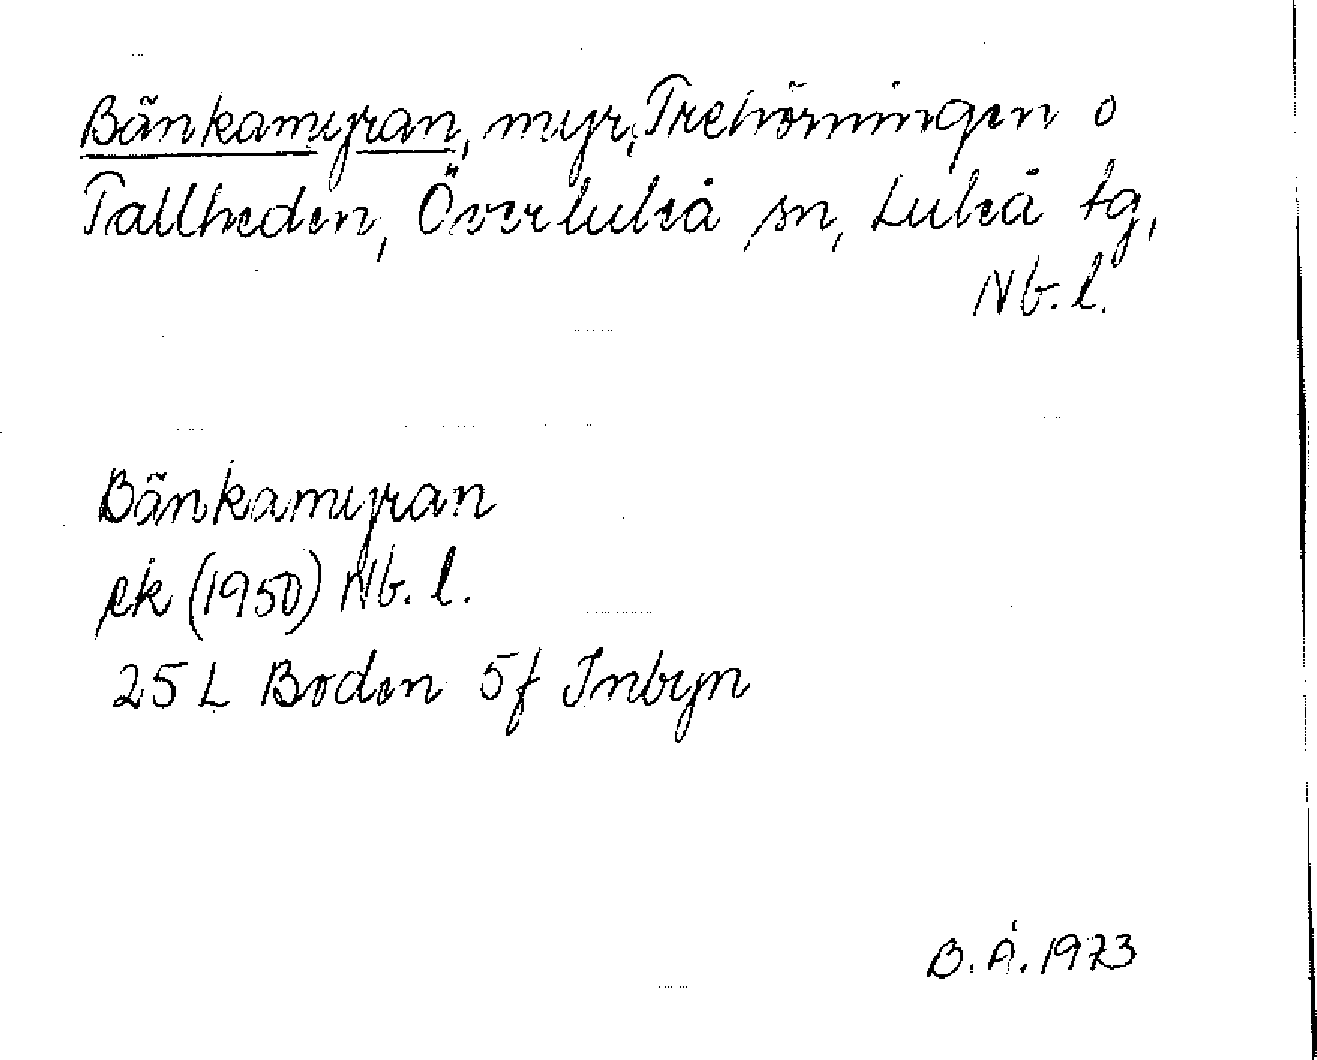 Bänkamyran, myr, Trehörningen o
Tallheden, Överluleå sn, Luleå tg,
Nb. l.
Bänkamyran
ek (1950) Nb. l.
25 L Boden 5f Inbyn
B. Å. 1973